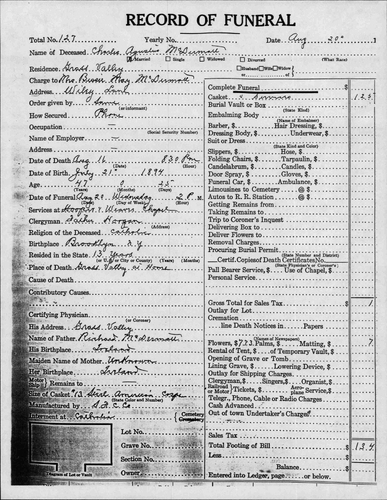 RECORD OF FUNERAL
Total No. 127 Yearly No. Date Aug 20" 1
Name of Deceased Charles McDermott
Married Single Widowed Divorced (What Race)
Residence Grass Valley Husband Wife Widow of
Charge to Mrs. May McDermott
Address
Order given by Same (or informant)
How Secured Phone
Occupation — (Social Security Number)
Name of Employer —
Address —
Date of Death Aug 16 8:30 Pm (Hour)
Date of Birth July 21" 1894
Age 47 0 25
(Years) (Months) (Days)
Date of Funeral Aug 20 Wednesday 2 P.M.
(Date) (Day of Week) (Hour)
Services at Hooper & Weaver Chapel
Clergyman Father Horgan
Religion of the Deceased Catholic
Birthplace Brooklyn N.Y
Resided in the State 13 Years
(or U.S. or City or County) (Years) (Months)
Place of Death Grass Valley at Home
Cause of Death
Contributory Causes
Certifying Physician
(or Coroner)
His Address Grass Valley
Name of Father Richard McDermott
His Birthplace Ireland
Maiden Name of Mother Unknown
Her Birthplace Ireland
Motor Remains to
Size of Casket
(State Color and Number)
Manufactured by
Interment at Catholic Cemetery Crematory
Lot No.
Grave No.
Section No.
Owner
Diagram of Lot or Vault
Complete Funeral
Casket 125
Burial Vault or Box
(State Kind)
Embalming Body
(Name of Embalmer)
Barber, Hair Dressing, $
Dressing Body, $ Underwear, $
Suit or Dress
(State Kind and Color)
Slippers, $ Hose, $
Folding Chairs, $ Tarpaulin, $
Candelabrum, $ Candles, $
Door Spray, $ Gloves, $
Funeral Car, $ Ambulance, $
Limousines to Cemetery
Autos to R. R. Station @ $
Getting Remains from
Taking Remains to
Trip to Coroner's Inquest
Delivering Box to
Deliver Flowers to
Removal Charges
Procuring Burial Permit
(State Number and District)
Certif. Copies of Death Certificates No.
(State Physician's or Coroner's)
Pall Bearer Service, $ Use of Chapel, $
Personal Service
Gross Total for Sales Tax $ 1
Outlay for Lot
Cremation
line Death Notices in Papers
(Name of Newspapers)
Flowers, $7.23 Palms, $ Matting, $ 7
Rental of Tent, $ of Temporary Vault, $
Opening of Grave or Tomb
Lining Grave, $ Lowering Device, $
Outlay for Shipping Charges
Clergyman, $ Singers, $ Organist, $
Railroad Tickets, $ Motor Service, $ Aeroplane Service, $
Telegr., Phone, Cable or Radio Charges
Cash Advanced
Out of town Undertaker's Charges
Sales Tax
Total Footing of Bill $
Less
Balance
Entered into Ledger, page or below.